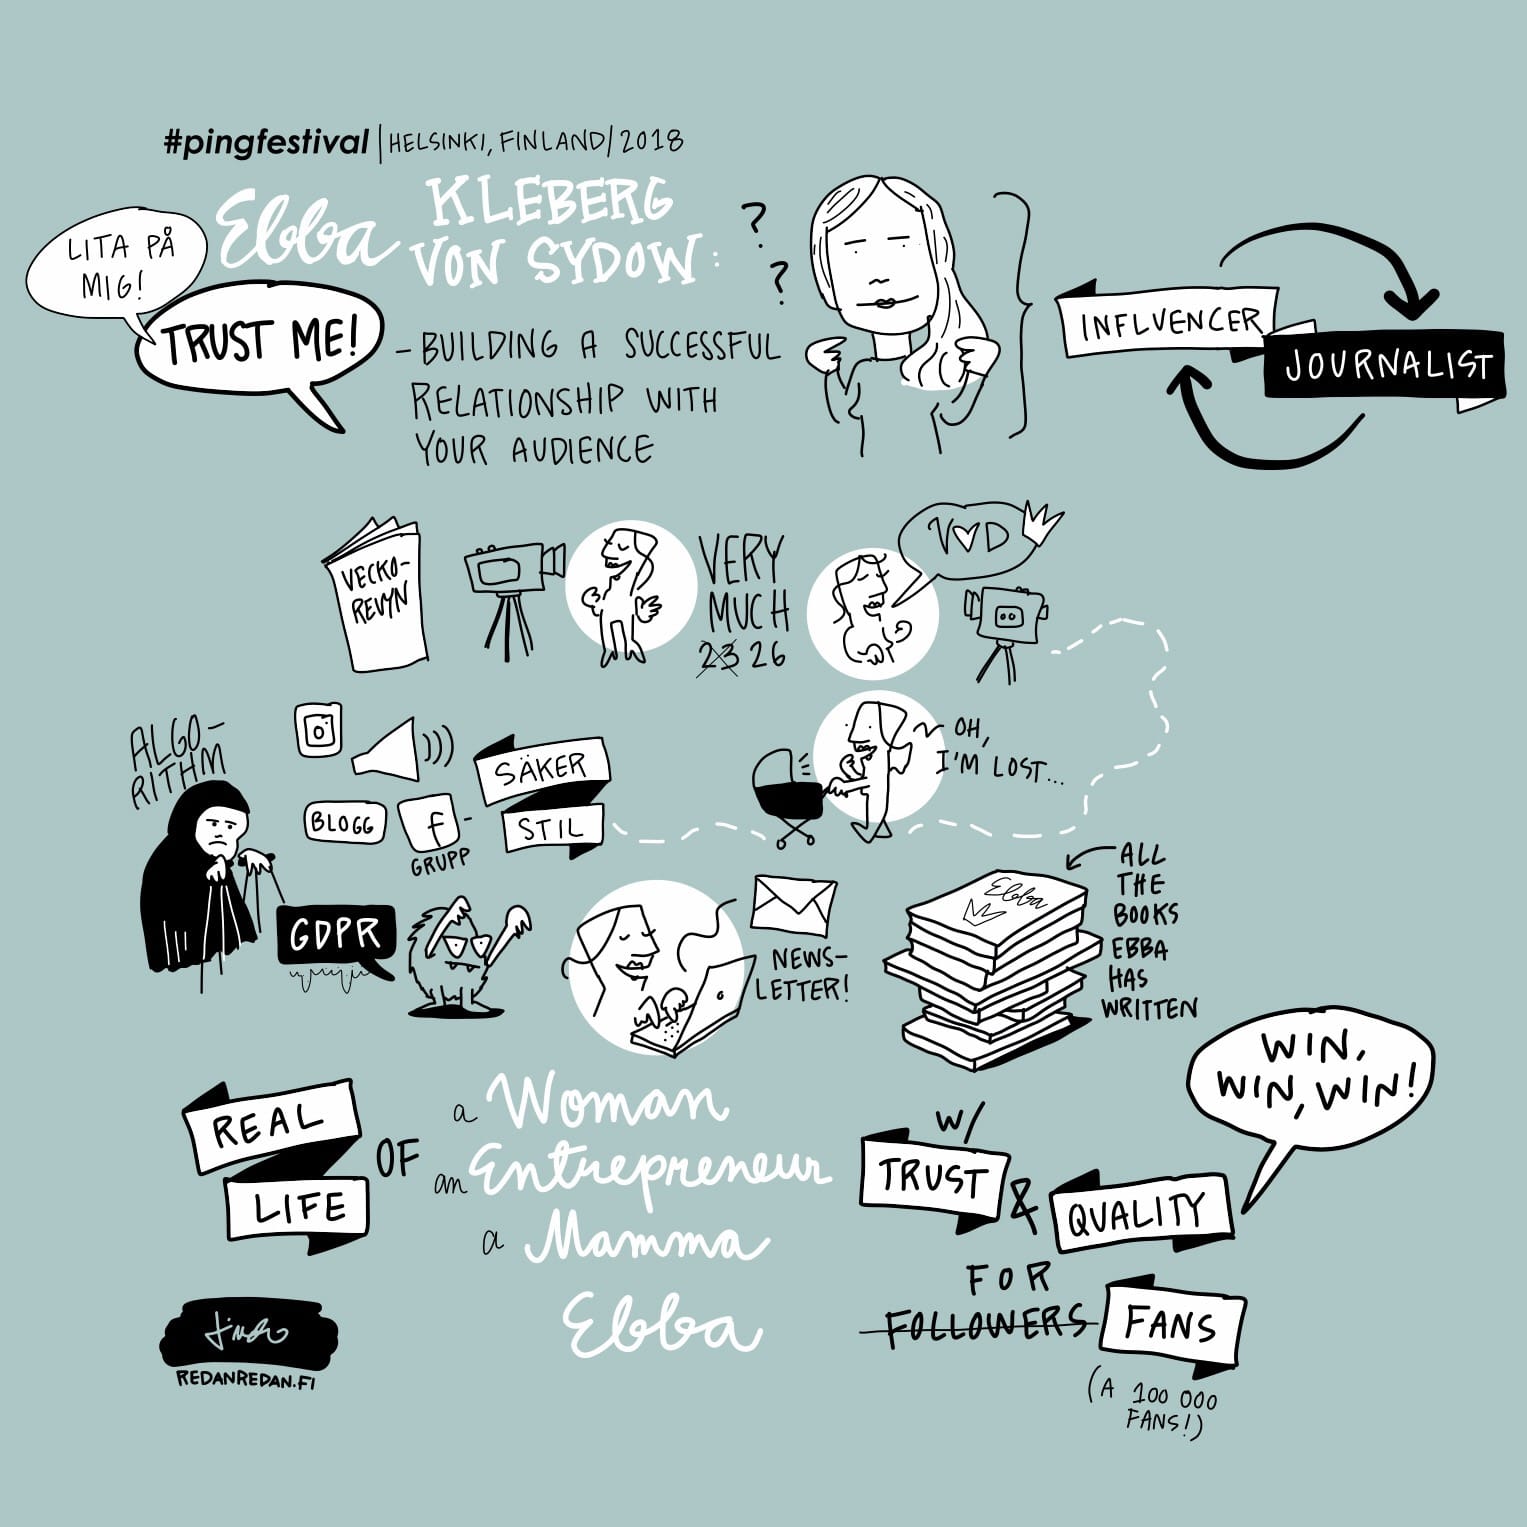 #pingfestival | HELSINKI, FINLAND / 2018
Ebba KLEBERG
VON SYDOW:
LITA PÅ
MIG!
TRUST ME!
– BUILDING A SUCCESSFUL
RELATIONSHIP WITH
YOUR AUDIENCE
? ?
INFLUENCER
JOURNALIST
VECKO-
REVYN
VERY
MUCH
23 26
V♥D
ALGO-
RITHM
BLOGG
f-
GRUPP
SÄKER
STIL
OH,
I'M LOST...
GDPR
NEWS-
LETTER!
Ebba
ALL
THE
BOOKS
EBBA
HAS
WRITTEN
REAL
LIFE
OF
a Woman
an Entrepreneur
a Mamma
Ebba
W/
TRUST
&
QUALITY
WIN,
WIN, WIN!
FOR
FOLLOWERS FANS
(A 100 000
FANS!)
REDANREDAN.FI